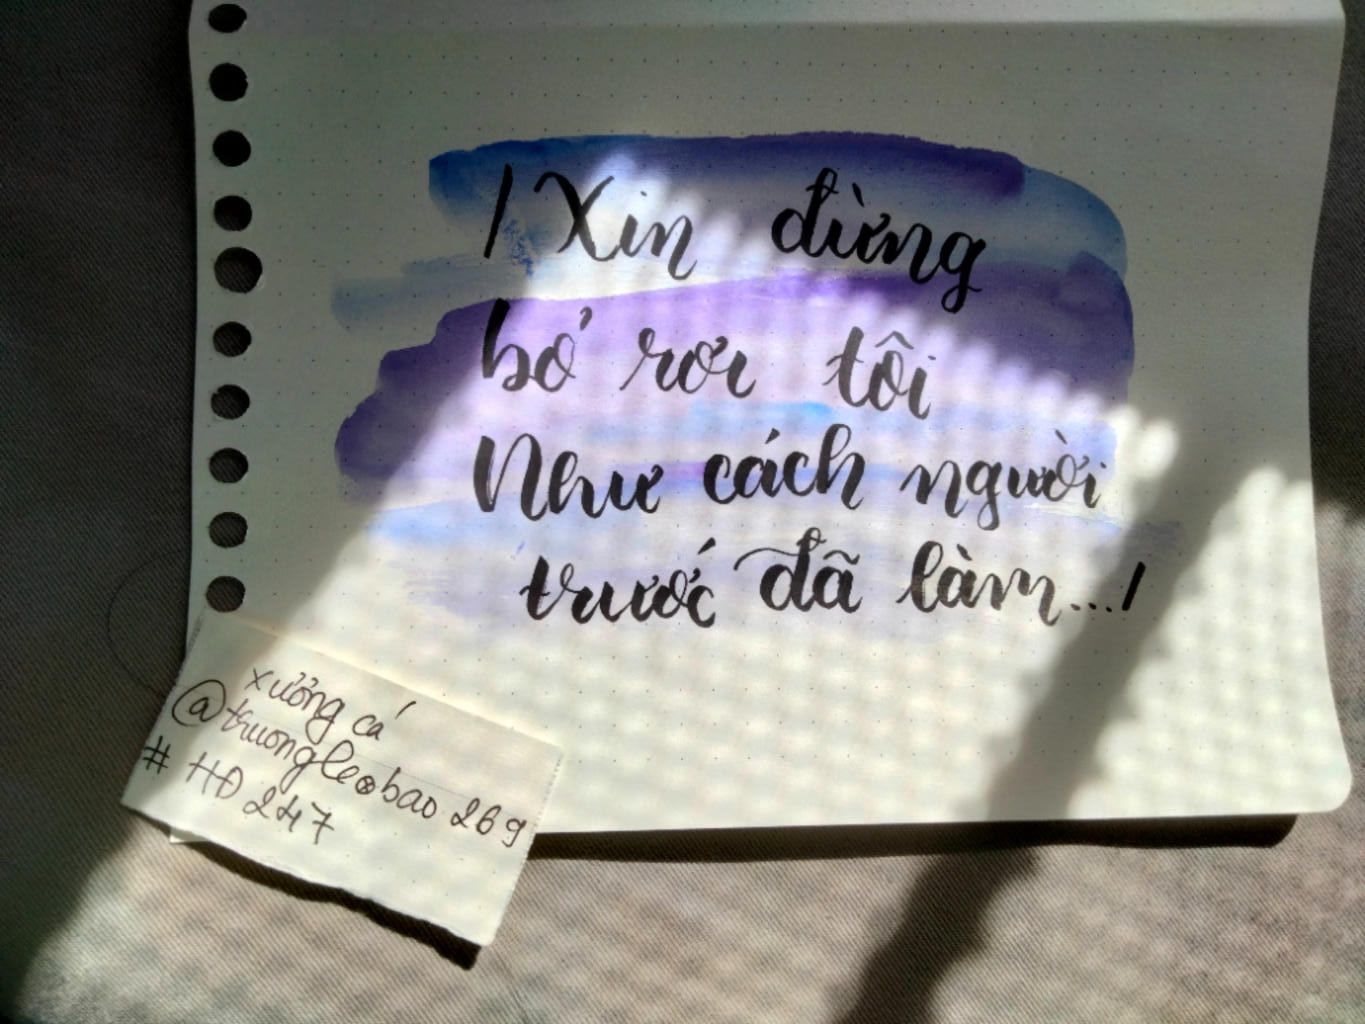 / Xin đừng
bỏ rơi tôi
Như cách người
trước đã làm.../
xưởng cá
@truongleobao269
# HĐ247